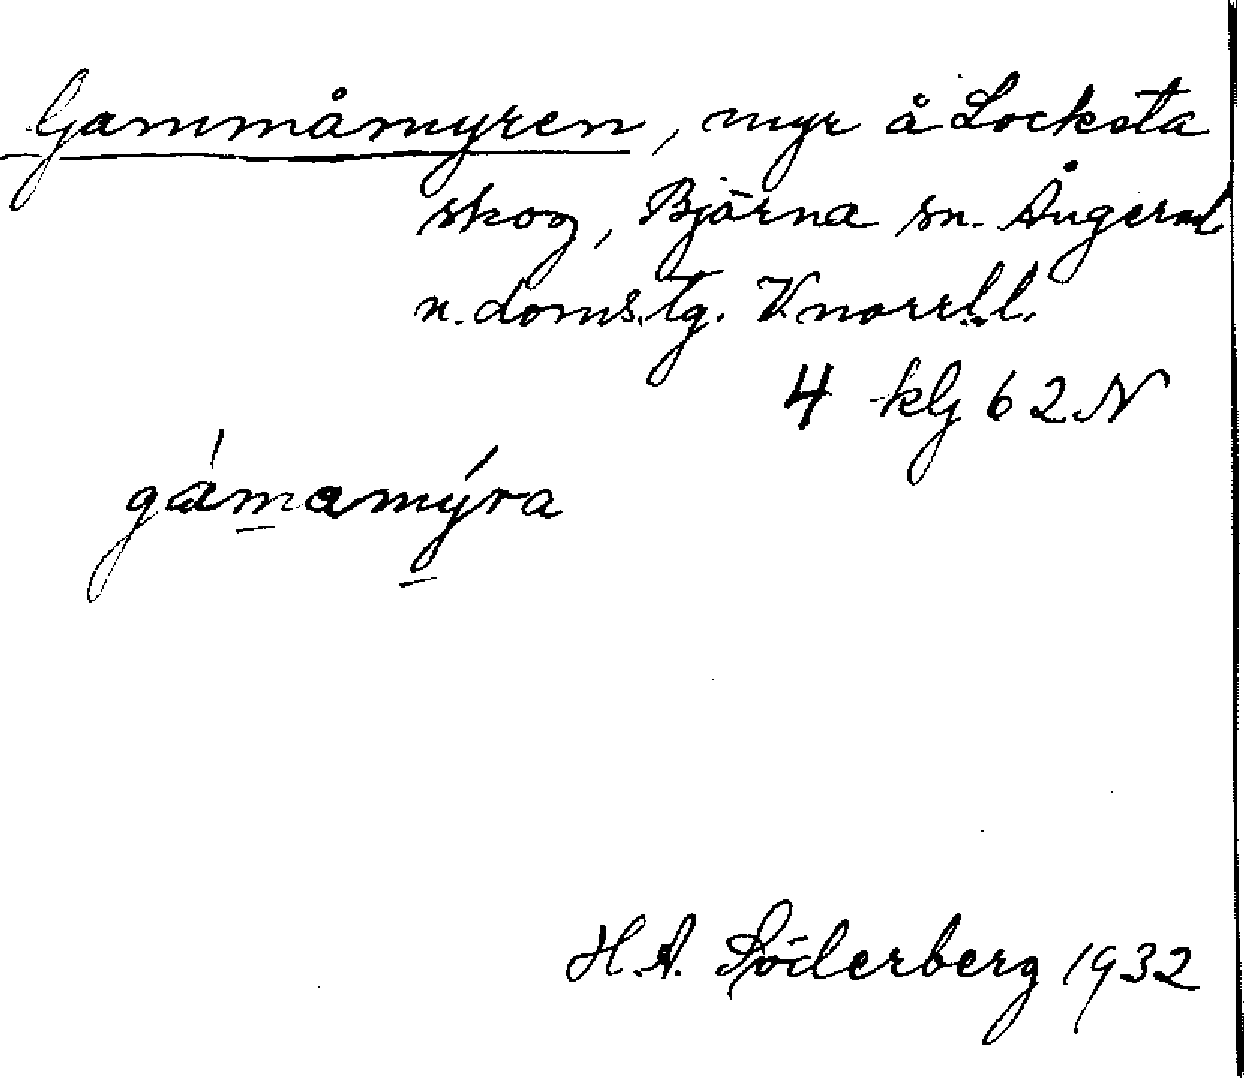 Gammåmyren, myr å Locksta
skog, Björna sn. Ångerml
n. doms.tg. V norrl.l.
4 klj 62 N
gámamýra
H.A. Söderberg 1932